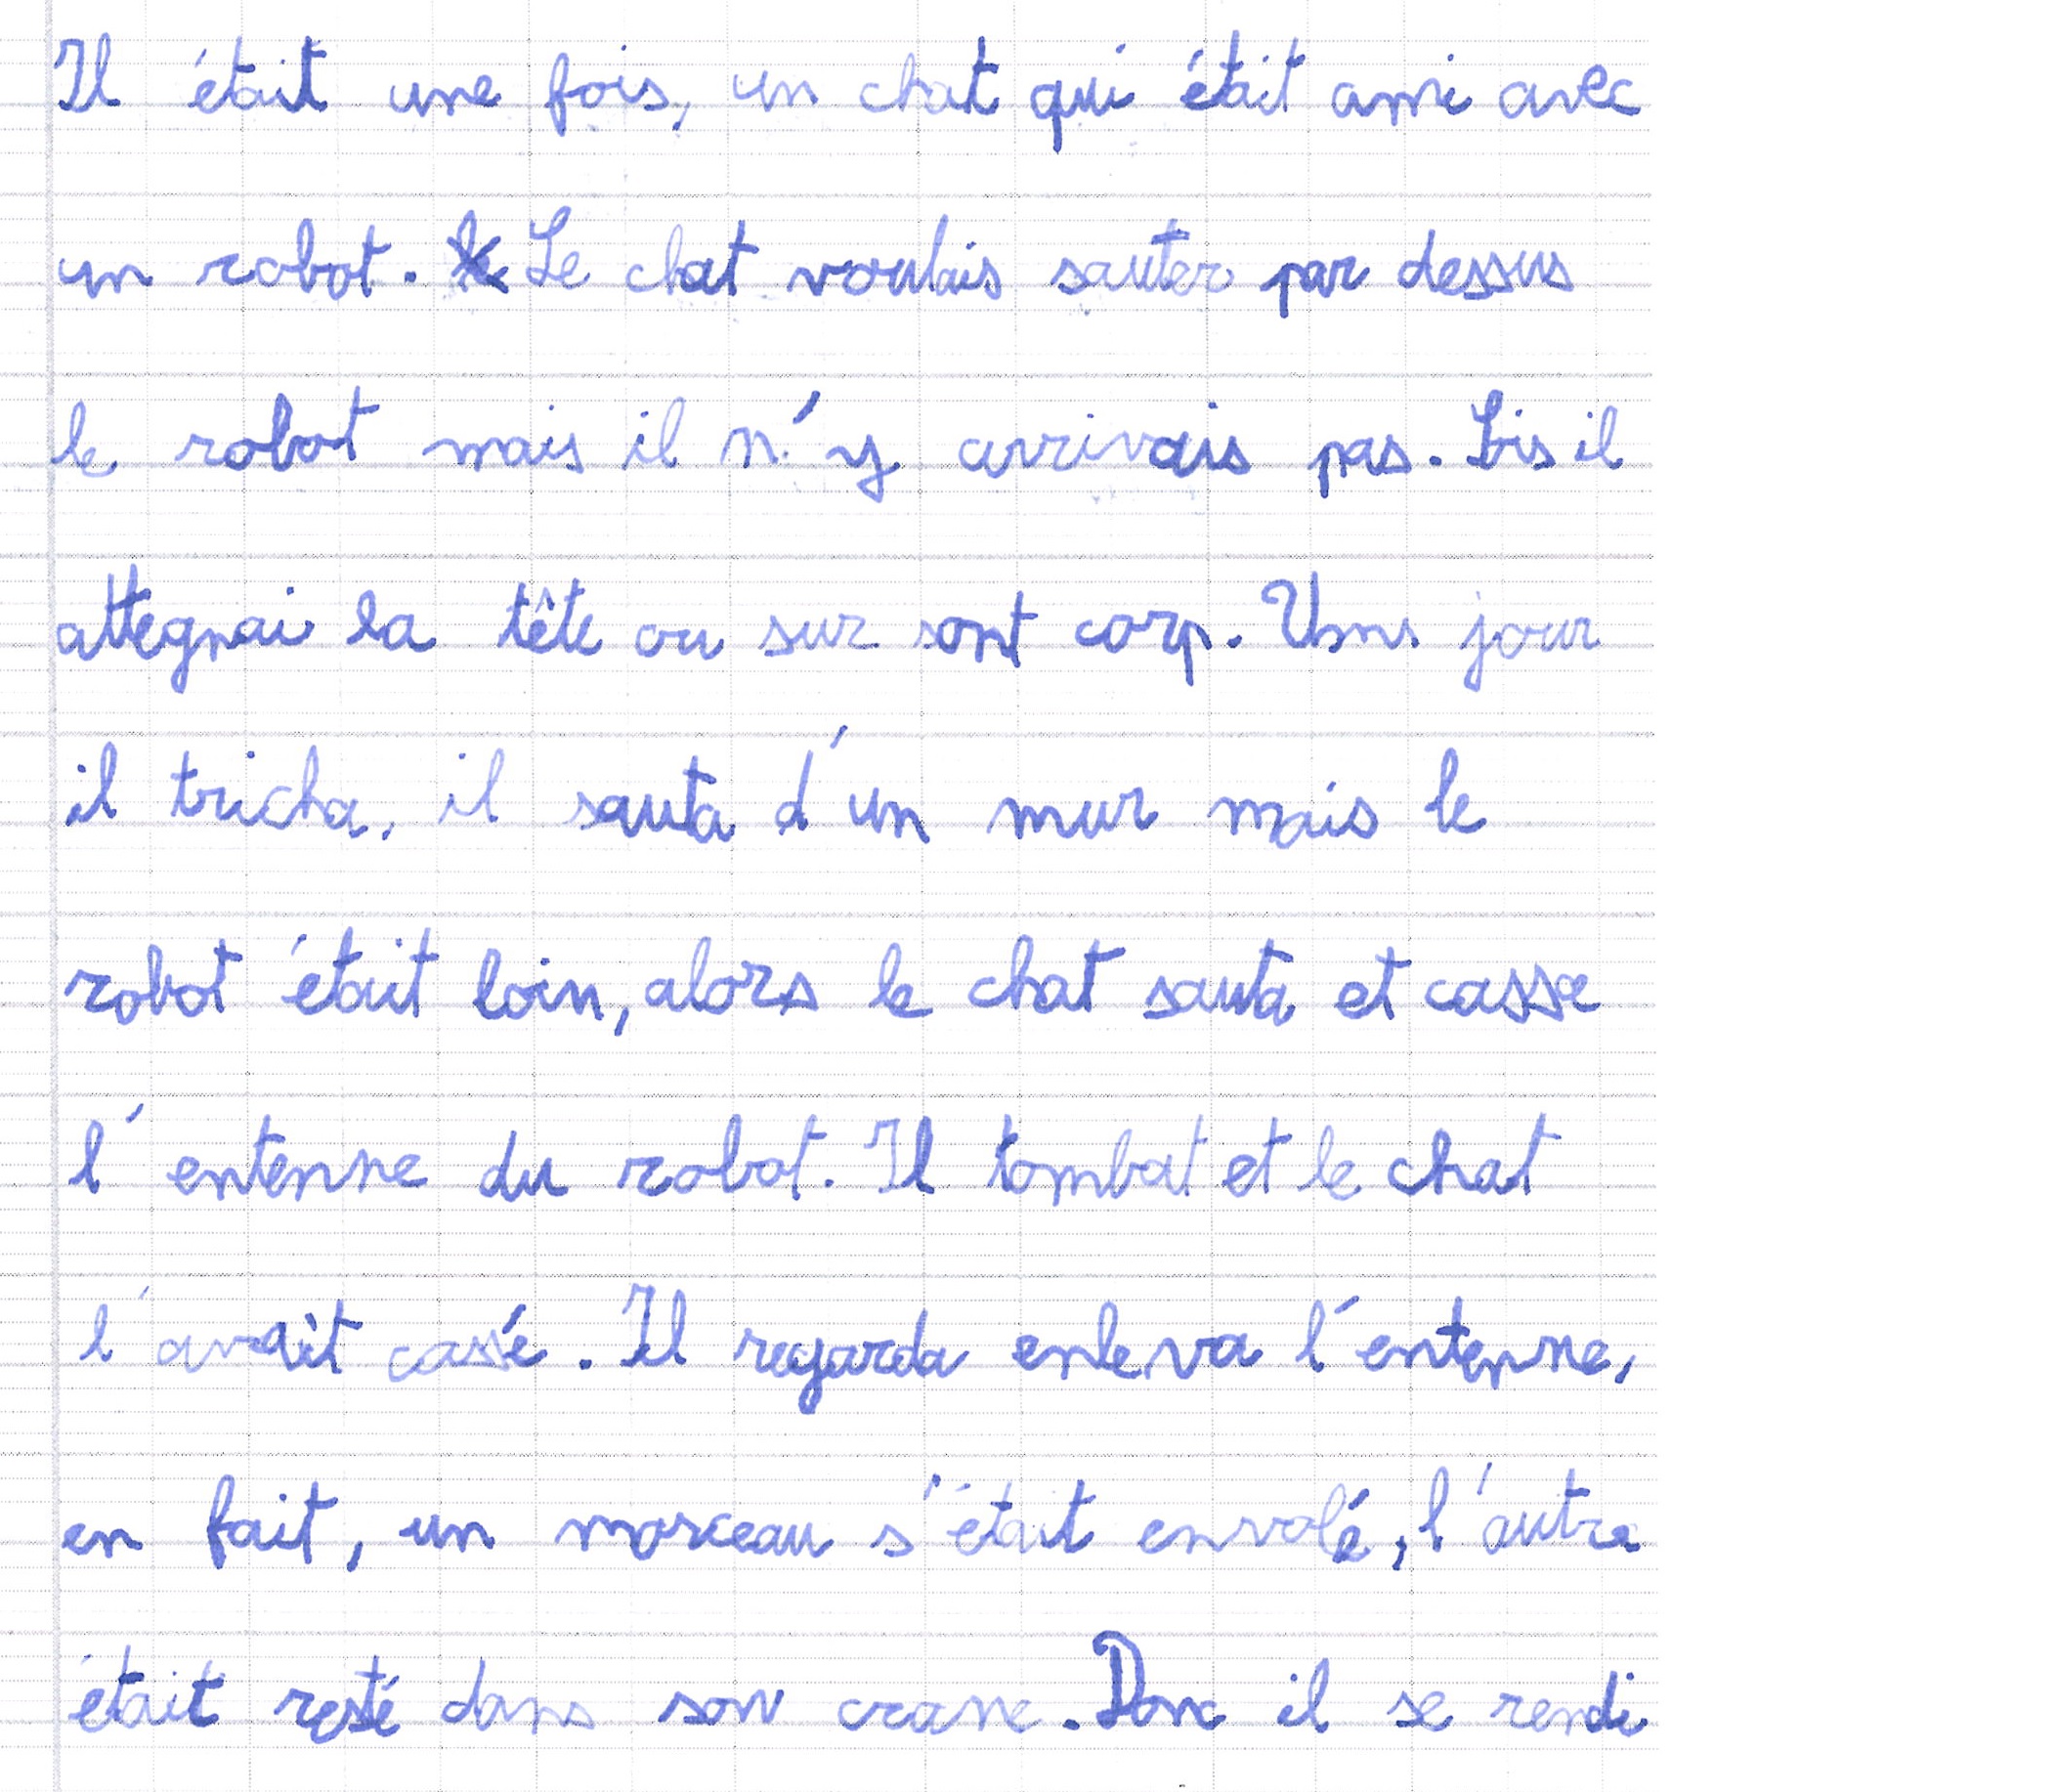 Il était une fois, un chat qui était ami avec
un robot. Le chat voulais sauter par dessus
le robot mais il n'y arrivais pas. il
attegnai la tête ou sur sont corp. Uns jour
il tricha, il sauta d'un mur mais le
robot était loin, alors le chat sauta et casse
l'entenne du robot. Il tombat et le chat
l'avait cassé. Il regarda enleva l'entenne,
en fait, un morceau s'était envolé, l'autre
était resté dans son crane. Donc il se rendi